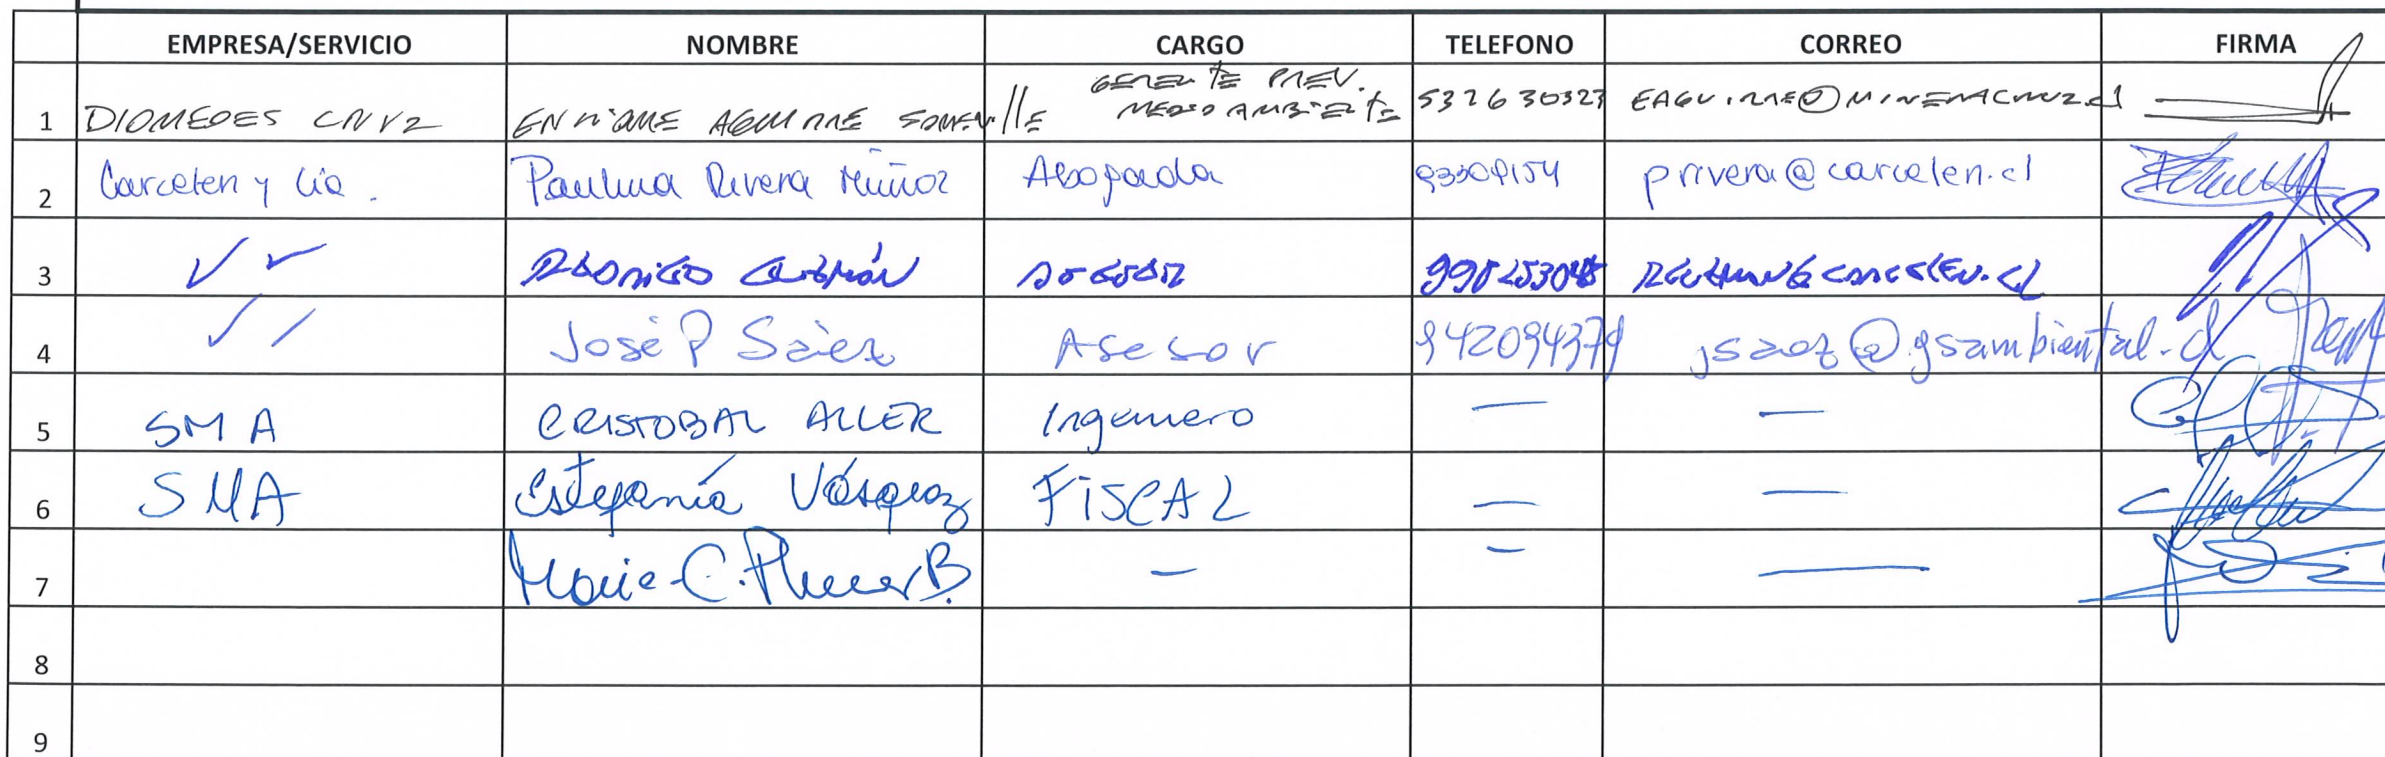 EMPRESA/SERVICIO NOMBRE CARGO TELEFONO CORREO FIRMA
1 DIOMEDES CRUZ ENRIQUE AGUIRRE SOMERVILLE GERENTE PREV. MEDIO AMBIENTE 532630323 EAGUIRRE@MINERACRUZ.cl
2 Carcelen y Cía. Paulina Rivera Muñoz Abogada privera@carcelen.cl
3 ✓ ✓ RODRIGO GUZMÁN RGUZMAN@CARCELEN.CL
4 José P Sáez Asesor 942094379 jsaez@gsambiental.cl
5 SMA CRISTOBAL ALLER Ingeniero — —
6 SMA Estefanía Vásquez FISCAL — —
7 C. B. — — —
8
9